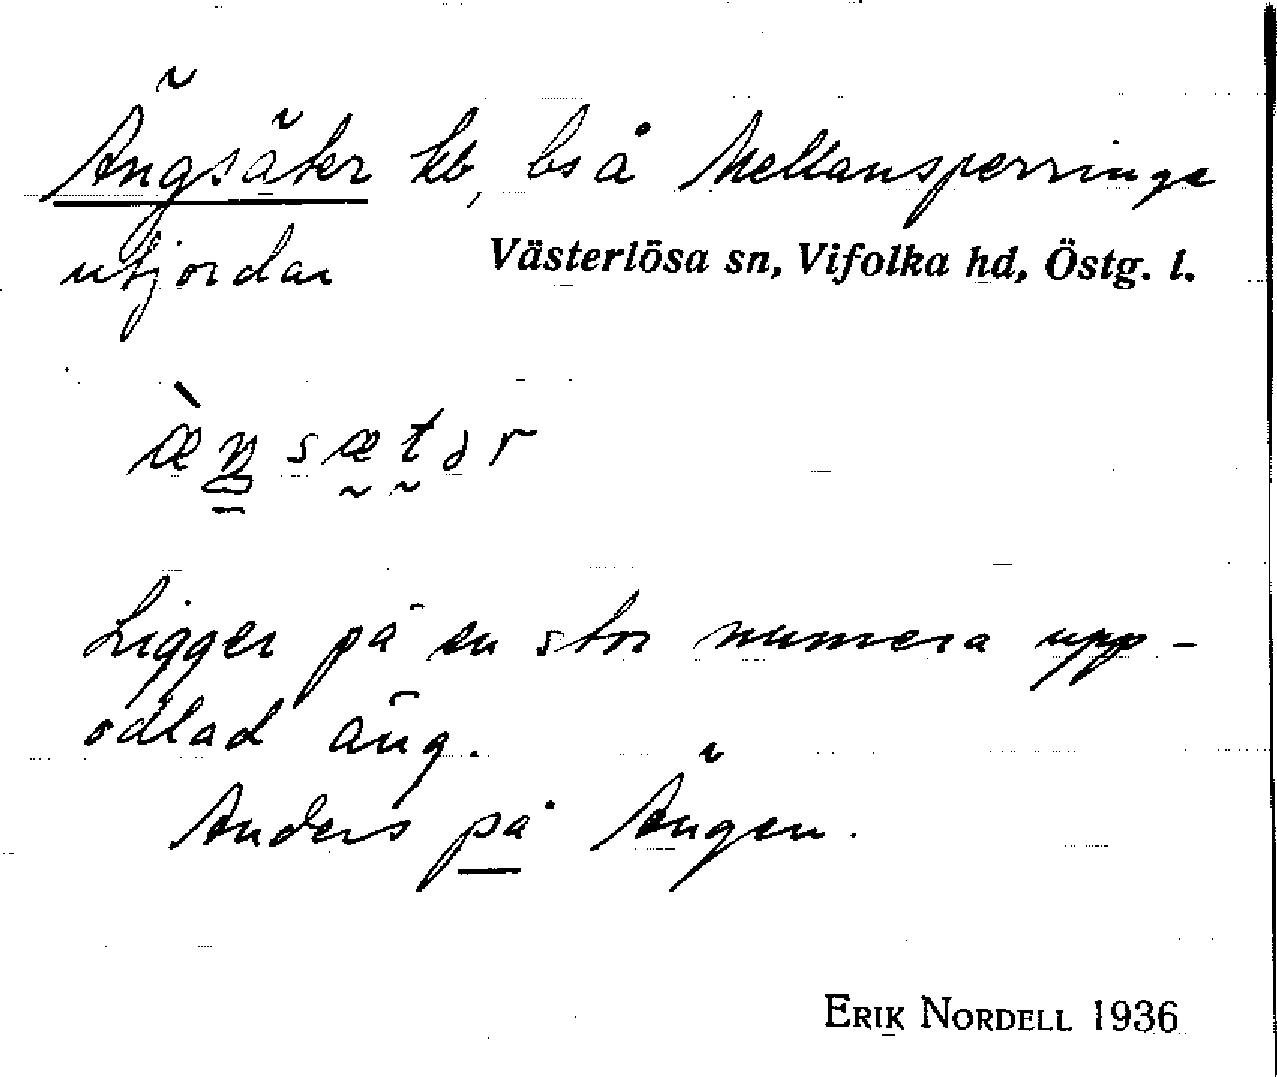 Ängsäter hb, bs å Mellansperringe
utjordar Västerlösa sn, Vifolka hd, Östg. l.
æ̀ŋsætər
Ligger på en stor numera upp-
odlad äng.
Anders på Ängen.
ERIK NORDELL 1936